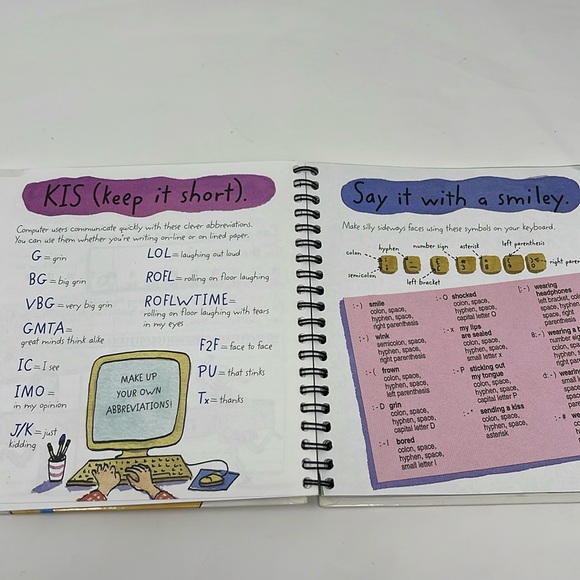 KIS (keep it short).
Computer users communicate quickly with these clever abbreviations.
You can use them whether you're writing on-line or on lined paper.
G = grin
BG = big grin
VBG = very big grin
GMTA =
great minds think alike
IC = I see
IMO =
in my opinion
J/K = just
kidding
LOL = laughing out loud
ROFL = rolling on floor laughing
ROFLWTIME =
rolling on floor laughing with tears
in my eyes
F2F = face to face
PU = that stinks
Tx = thanks
MAKE UP
YOUR OWN
ABBREVIATIONS!
Say it with a smiley.
Make silly sideways faces using these symbols on your keyboard.
colon
hyphen
number sign
asterisk
left parenthesis
semicolon
left bracket
right paren
:-) smile
colon, space,
hyphen, space,
right parenthesis
;-) wink
semicolon, space,
hyphen, space,
right parenthesis
:-( frown
colon, space,
hyphen, space,
left parenthesis
:-D grin
colon, space,
hyphen, space,
capital letter D
:-I bored
colon, space,
hyphen, space,
small letter l
:-O shocked
colon, space,
hyphen, space,
capital letter O
:-x my lips
are sealed
colon, space,
hyphen, space,
small letter x
:-P sticking out
my tongue
colon, space,
hyphen, space,
capital letter P
:-* sending a kiss
colon, space,
hyphen, space,
asterisk
[:-) wearing
headphones
left bracket, col
space, hyphen,
space, right
parenthesis
8:-) wearing a b
number eig
colon, space
hyphen, sp
right paren
d:-) wearing
small
space
space
:-# we